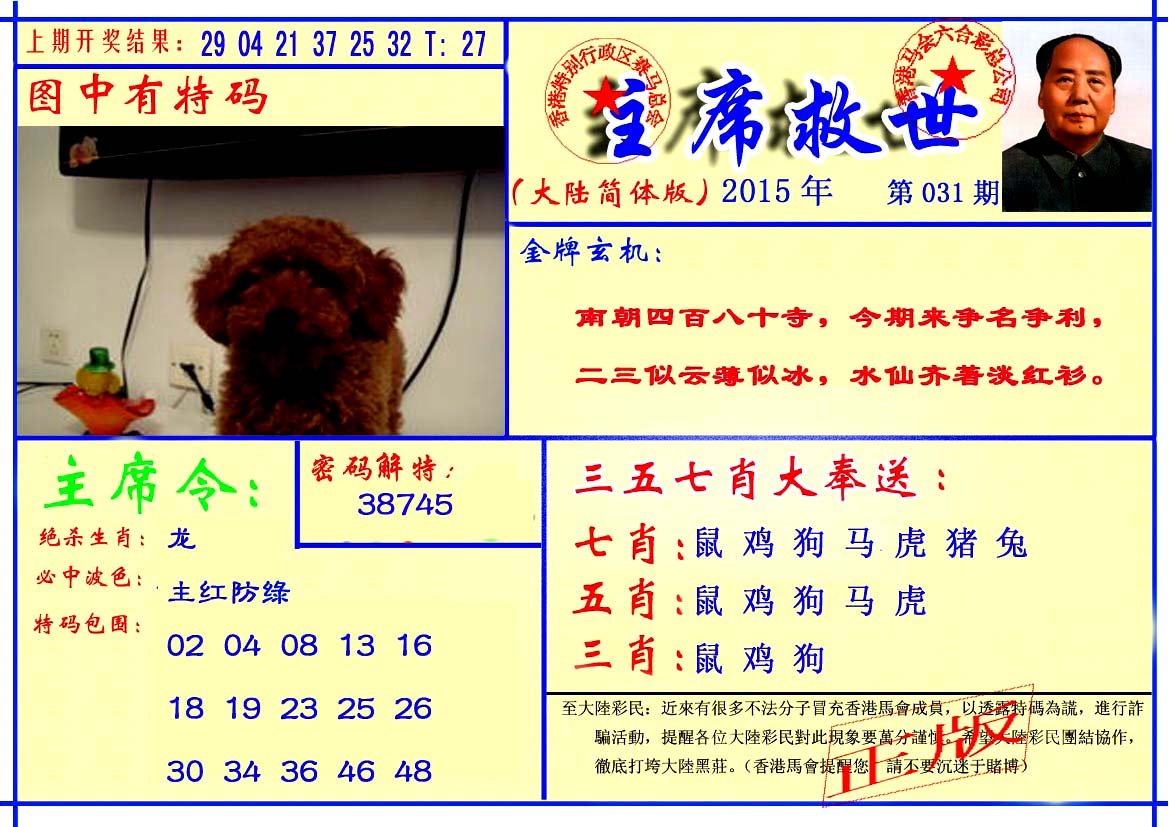 上期开奖结果：29 04 21 37 25 32 T：27
图中有特码
香港特别行政区赛马总会
香港马会六合彩总公司
主席救世
（大陆简体版）2015年 第031期
金牌玄机：
南朝四百八十寺，今期来争名争利，
二三似云薄似冰，水仙齐著淡红衫。
主席令：
绝杀生肖：龙
必中波色：主红防绿
特码包围：
02 04 08 13 16
18 19 23 25 26
30 34 36 46 48
密码解特：
38745
三五七肖大奉送：
七肖：鼠 鸡 狗 马 虎 猪 兔
五肖：鼠 鸡 狗 马 虎
三肖：鼠 鸡 狗
至大陸彩民：近來有很多不法分子冒充香港馬會成員，以透露特碼為謊，進行詐
騙活動，提醒各位大陸彩民對此現象要萬分謹慎。希望大陸彩民團結協作，
徹底打垮大陸黑莊。（香港馬會提醒您 請不要沉迷于賭博）
正版